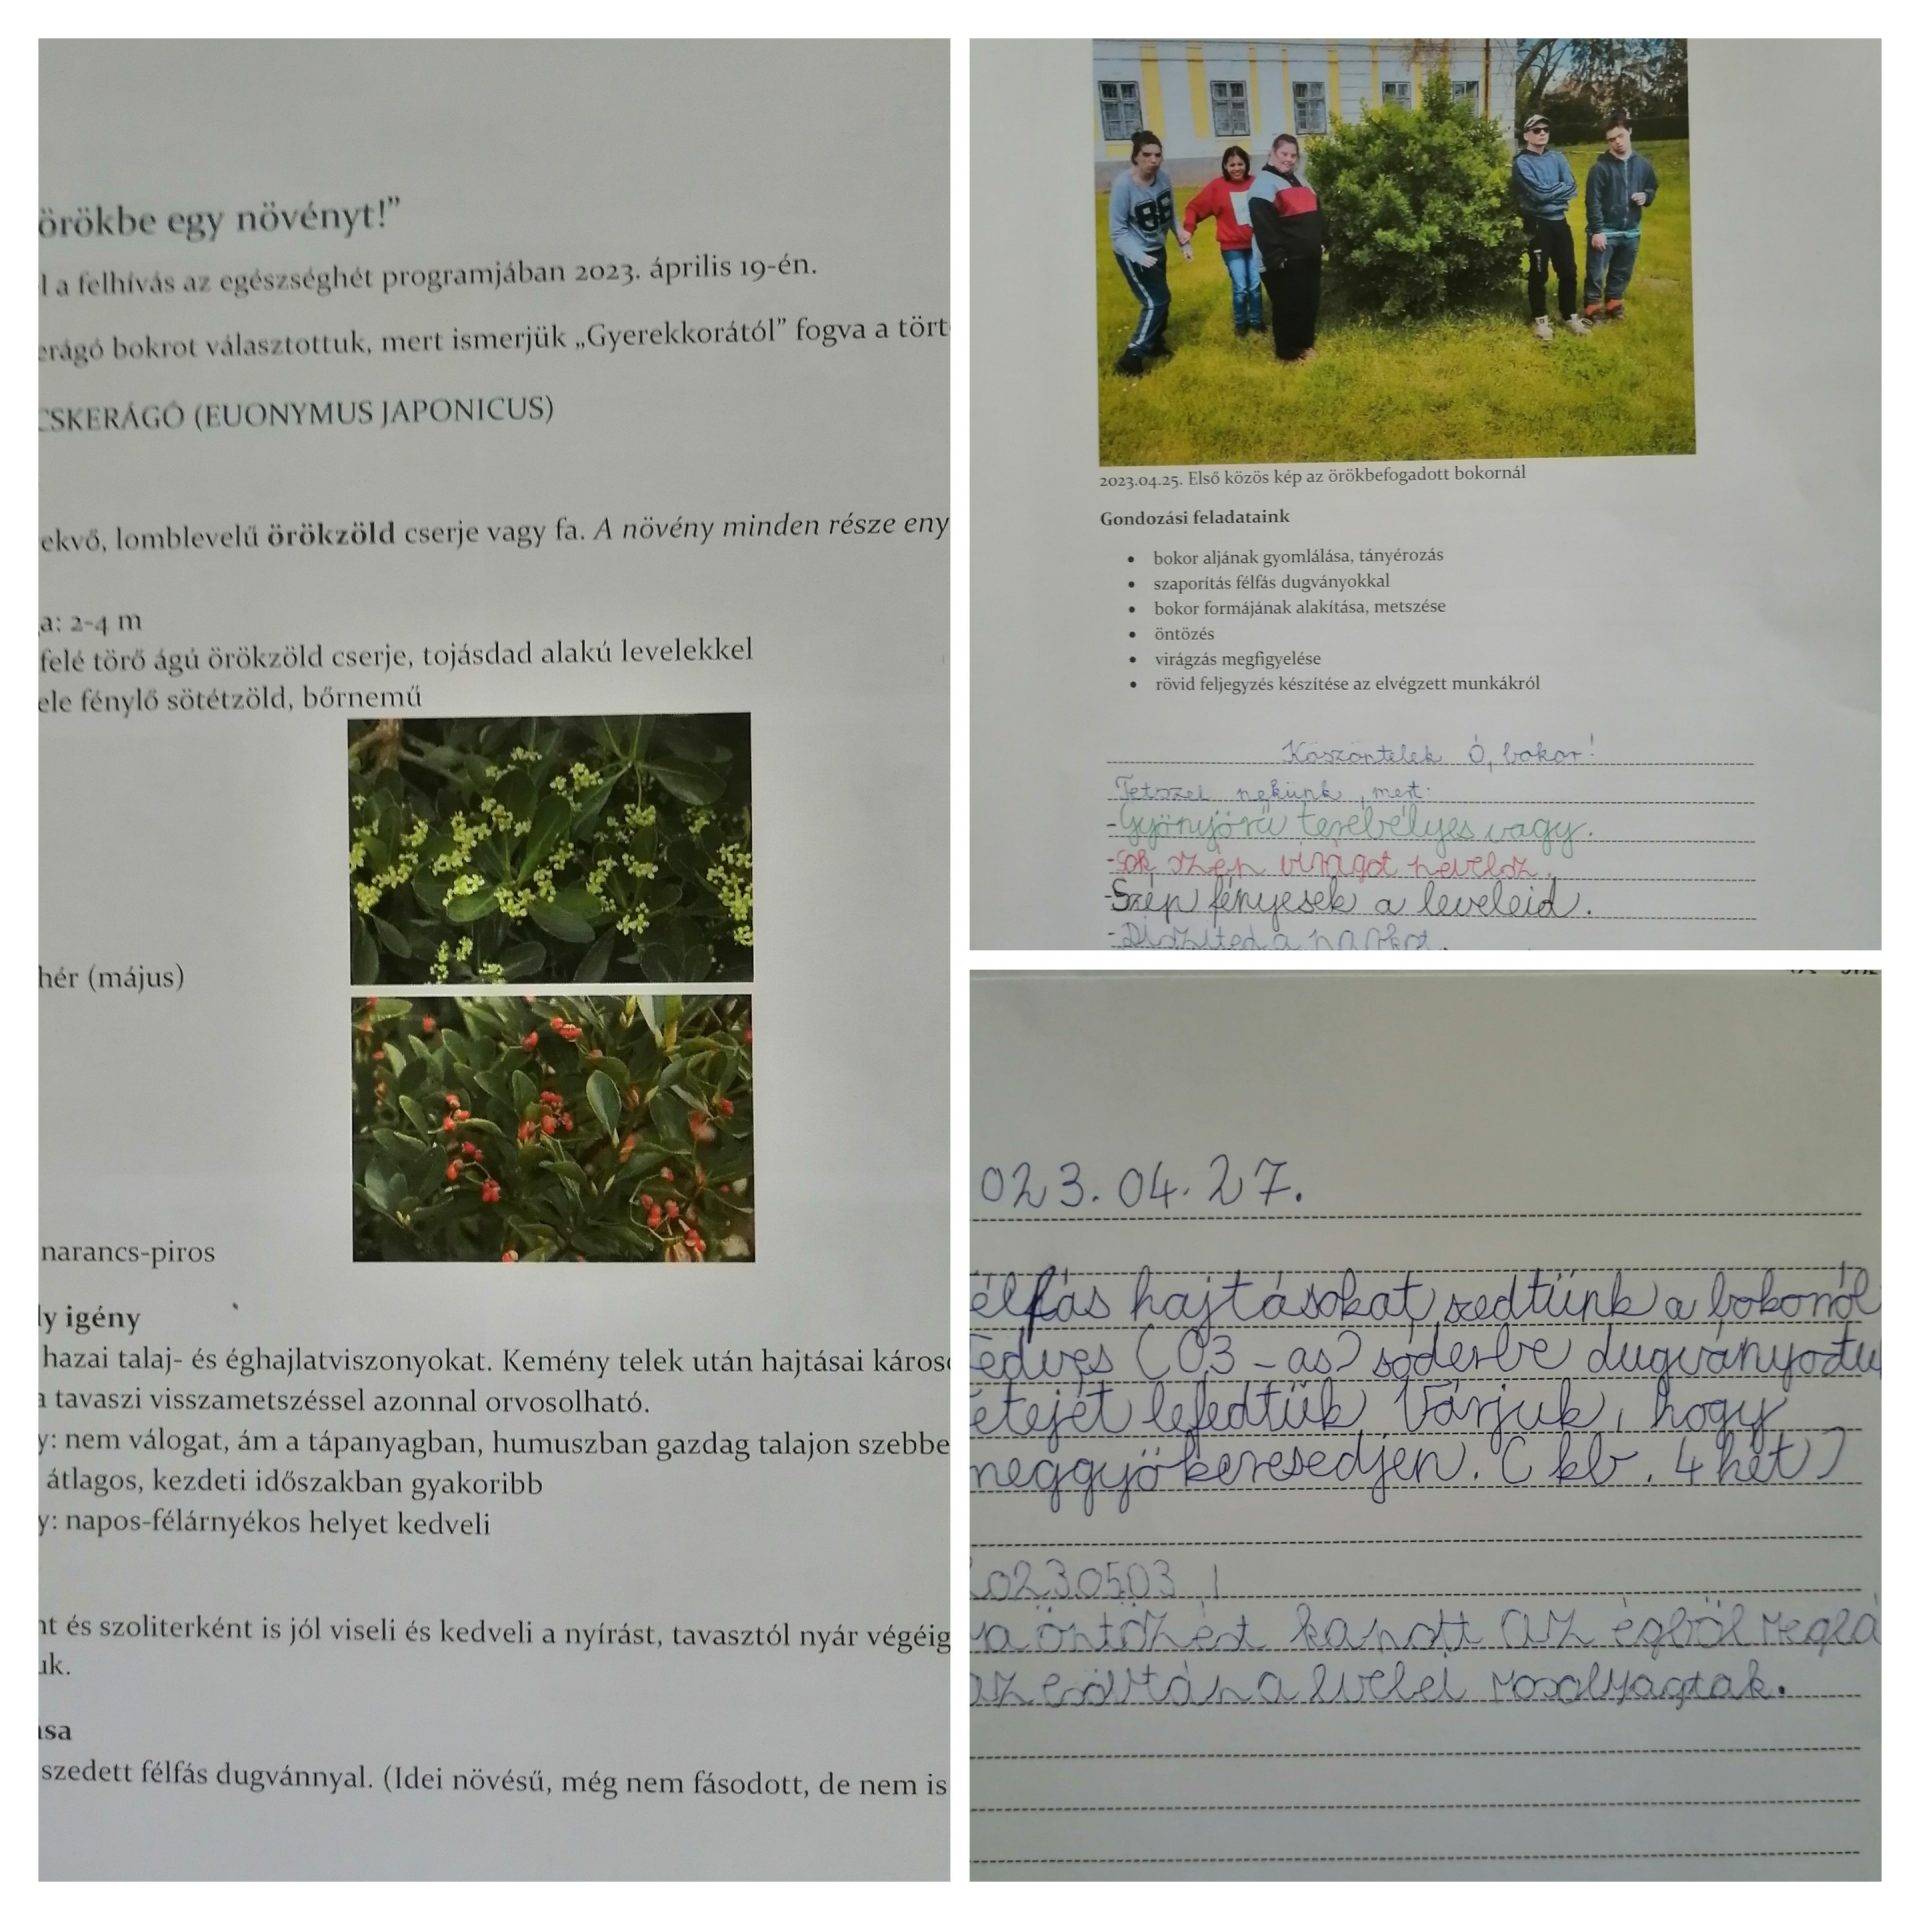 örökbe egy növényt!”
l a felhívás az egészséghét programjában 2023. április 19-én.
erágó bokrot választottuk, mert ismerjük „Gyerekkorától” fogva a tört
CSKERÁGÓ (EUONYMUS JAPONICUS)
ekvő, lomblevelű örökzöld cserje vagy fa. A növény minden része eny
a: 2-4 m
felé törő ágú örökzöld cserje, tojásdad alakú levelekkel
ele fénylő sötétzöld, bőrnemű
hér (május)
narancs-piros
ly igény
hazai talaj- és éghajlatviszonyokat. Kemény telek után hajtásai károso
a tavaszi visszametszéssel azonnal orvosolható.
y: nem válogat, ám a tápanyagban, humuszban gazdag talajon szebbe
átlagos, kezdeti időszakban gyakoribb
y: napos-félárnyékos helyet kedveli
nt és szoliterként is jól viseli és kedveli a nyírást, tavasztól nyár végéig
uk.
ása
szedett félfás dugvánnyal. (Idei növésű, még nem fásodott, de nem is
88
2023.04.25. Első közös kép az örökbefogadott bokornál
Gondozási feladataink
• bokor aljának gyomlálása, tányérozás
• szaporítás félfás dugványokkal
• bokor formájának alakítása, metszése
• öntözés
• virágzás megfigyelése
• rövid feljegyzés készítése az elvégzett munkákról
Köszöntelek Ó, bokor!
Tetszel nekünk, mert:
-Gyönyörű terebélyes vagy.
-Sok szép virágot nevelsz.
-Szép fényesek a leveleid.
-Díszíted a parkot.
023.04.27.
élfás hajtásokat szedtünk a bokorról
edves (03-as) sóderbe dugványoztu
etejét lefedtük Várjuk, hogy
meggyökeresedjen. (kb. 4 hét)
20230503
öntözést kapott az égből
az eső után a levelei mosolyogtak.